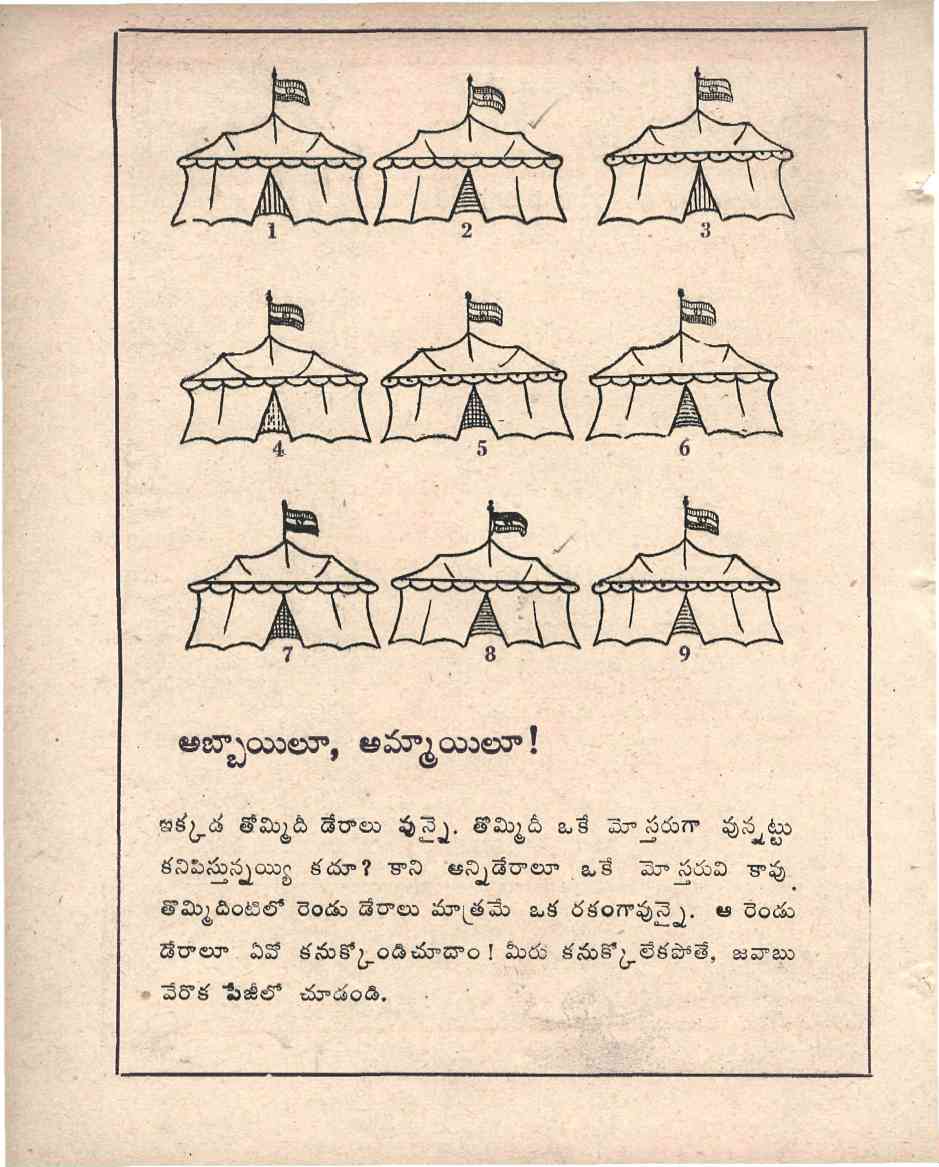 1 2 3
4 5 6
7 8 9
అబ్బాయిలూ, అమ్మాయిలూ!
ఇక్కడ తోమ్మిదీ డేరాలు వున్నై. తొమ్మిదీ ఒకే మోస్తరుగా వున్నట్టు
కనిపిస్తున్నయ్యి కదూ? కాని అన్నిడేరాలూ ఒకే మోస్తరువి కావు.
తొమ్మిదింటిలో రెండు డేరాలు మాత్రమే ఒక రకంగావున్నై. ఆ రెండు
డేరాలూ ఏవో కనుక్కోండిచూదాం! మీరు కనుక్కోలేకపోతే, జవాబు
వేరొక పేజీలో చూడండి.